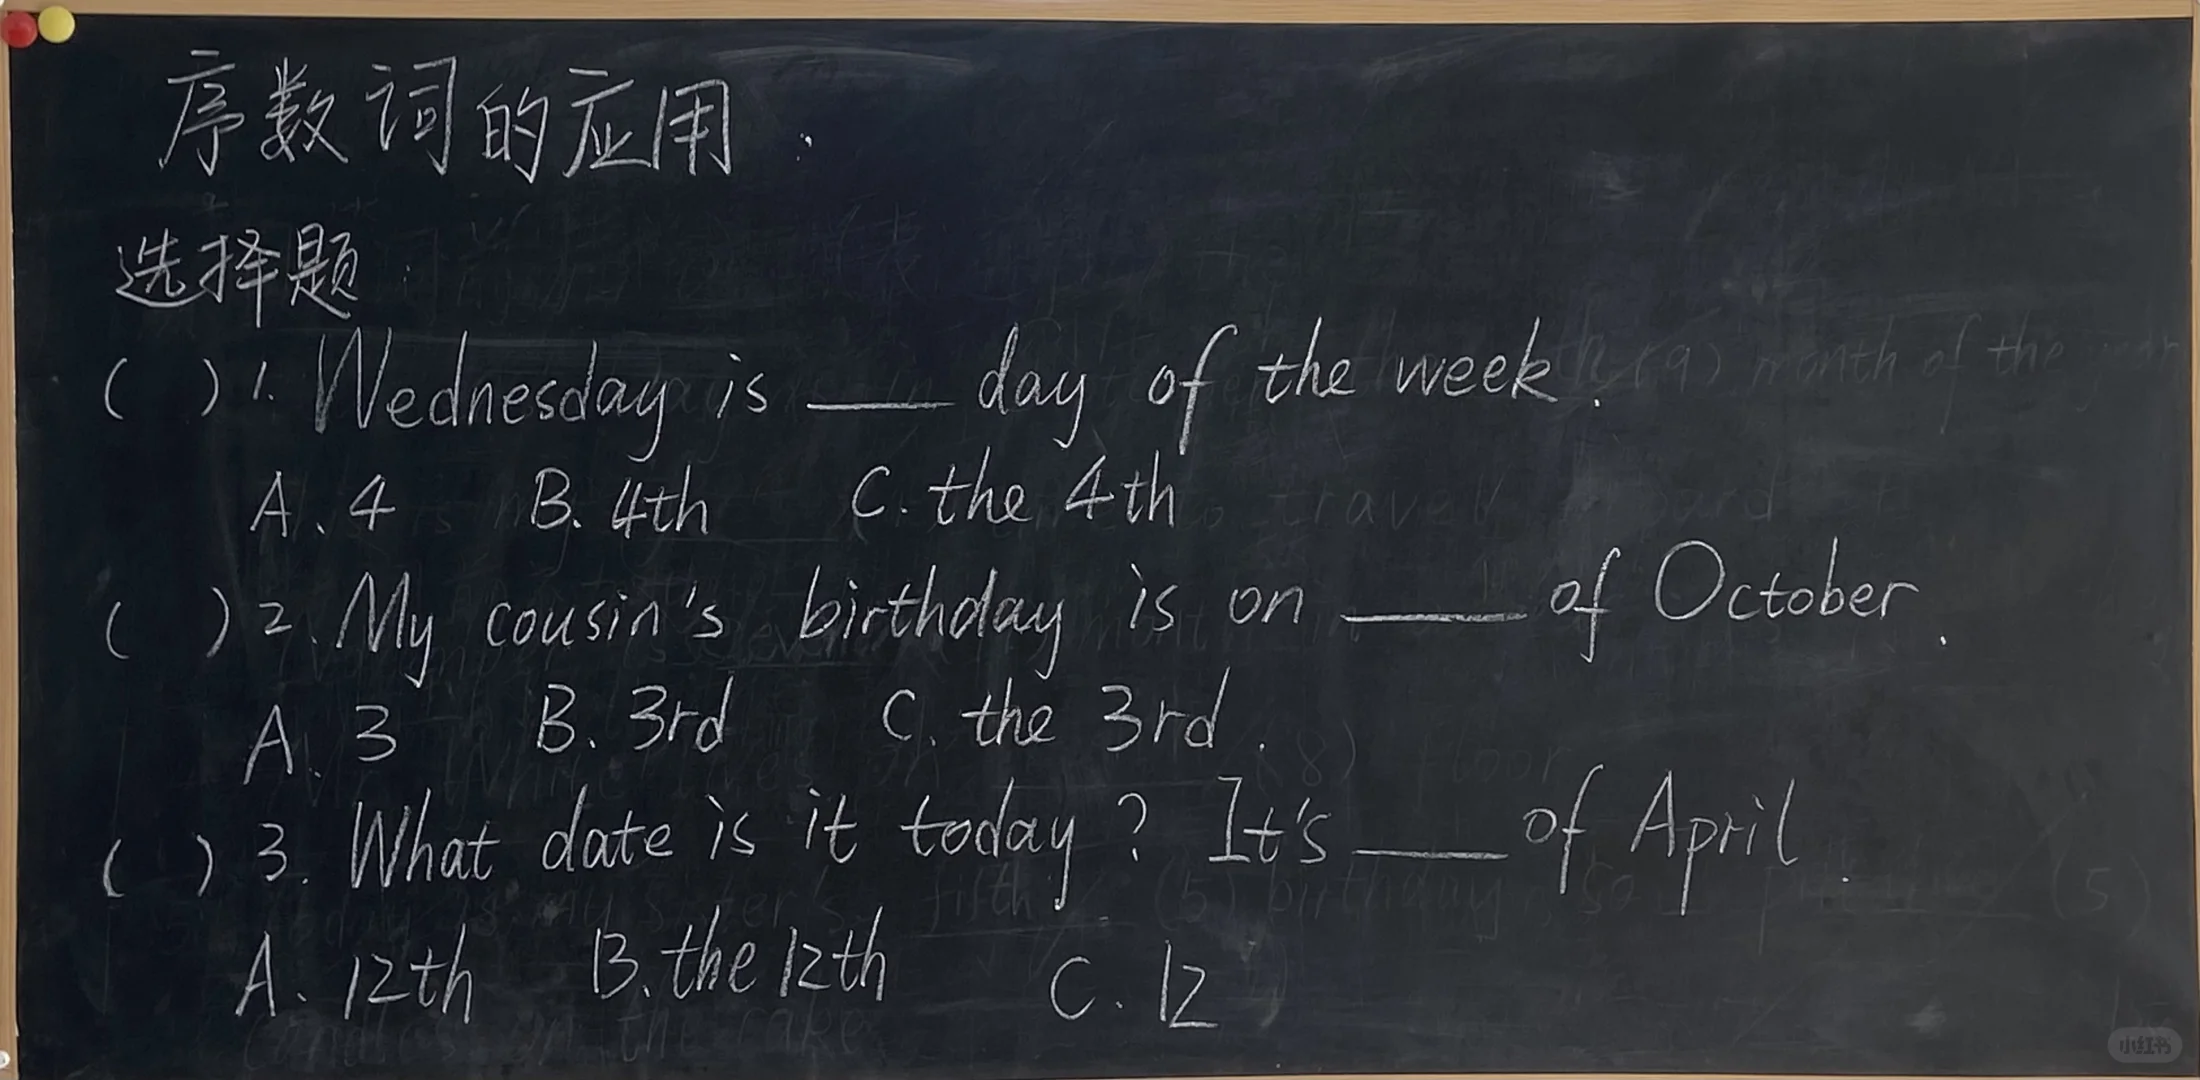 序数词的应用:
选择题:
( ) 1. Wednesday is ____ day of the week.
A. 4 B. 4th C. the 4th
( ) 2. My cousin's birthday is on ____ of October.
A. 3 B. 3rd C. the 3rd.
( ) 3. What date is it today? It's ____ of April.
A. 12th B. the 12th C. 12
小红书